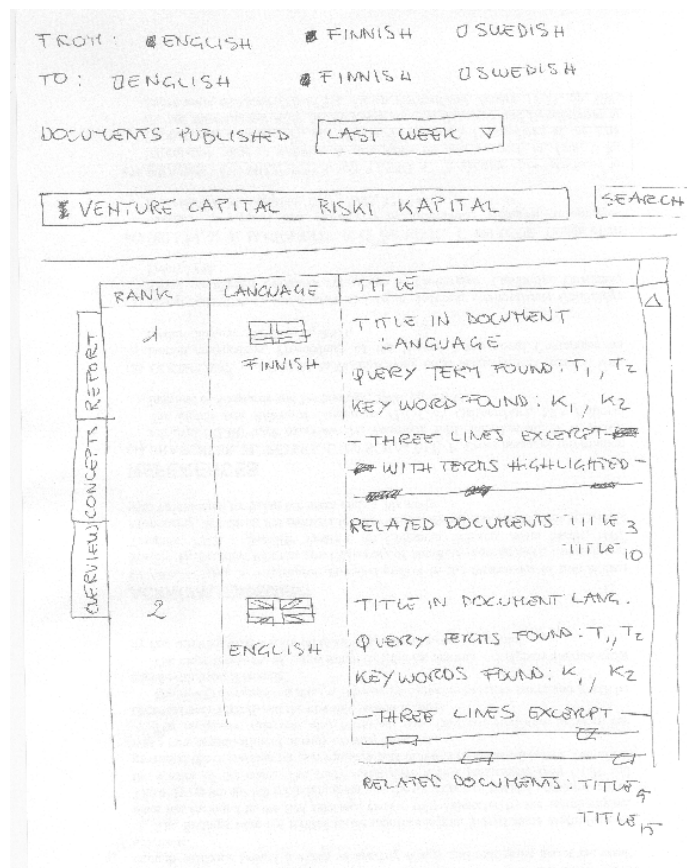 FROM: ENGLISH FINNISH SWEDISH
TO: ENGLISH FINNISH SWEDISH
DOCUMENTS PUBLISHED LAST WEEK
VENTURE CAPITAL RISKI KAPITAL SEARCH
RANK LANGUAGE TITLE
1 FINNISH TITLE IN DOCUMENT
LANGUAGE
QUERY TERM FOUND: T1, T2
KEY WORD FOUND: K1, K2
- THREE LINES EXCERPT -
WITH TERMS HIGHLIGHTED -
RELATED DOCUMENTS: TITLE 3
TITLE 10
2 ENGLISH TITLE IN DOCUMENT LANG.
QUERY TERMS FOUND: T1, T2
KEY WORDS FOUND: K1, K2
- THREE LINES EXCERPT -
RELATED DOCUMENTS: TITLE 9
TITLE 15
REPORT
CONCEPTS
OVERVIEW